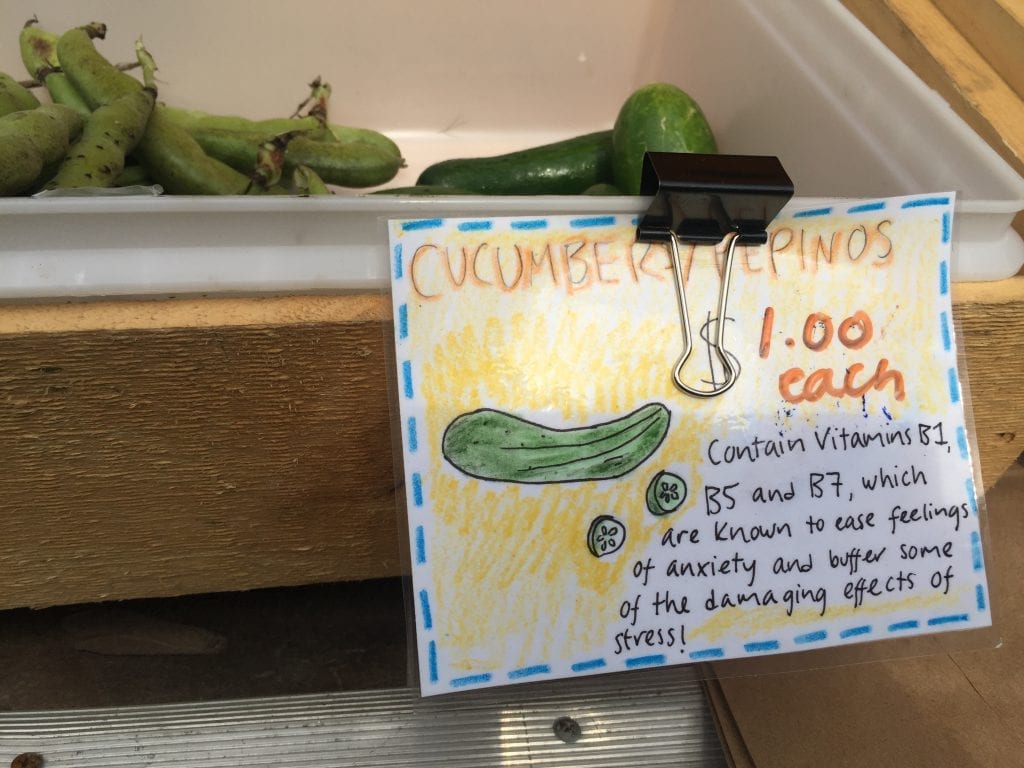 CUCUMBERS/PEPINOS
$1.00
each
Contain Vitamins B1,
B5 and B7, which
are known to ease feelings
of anxiety and buffer some
of the damaging effects of
stress!